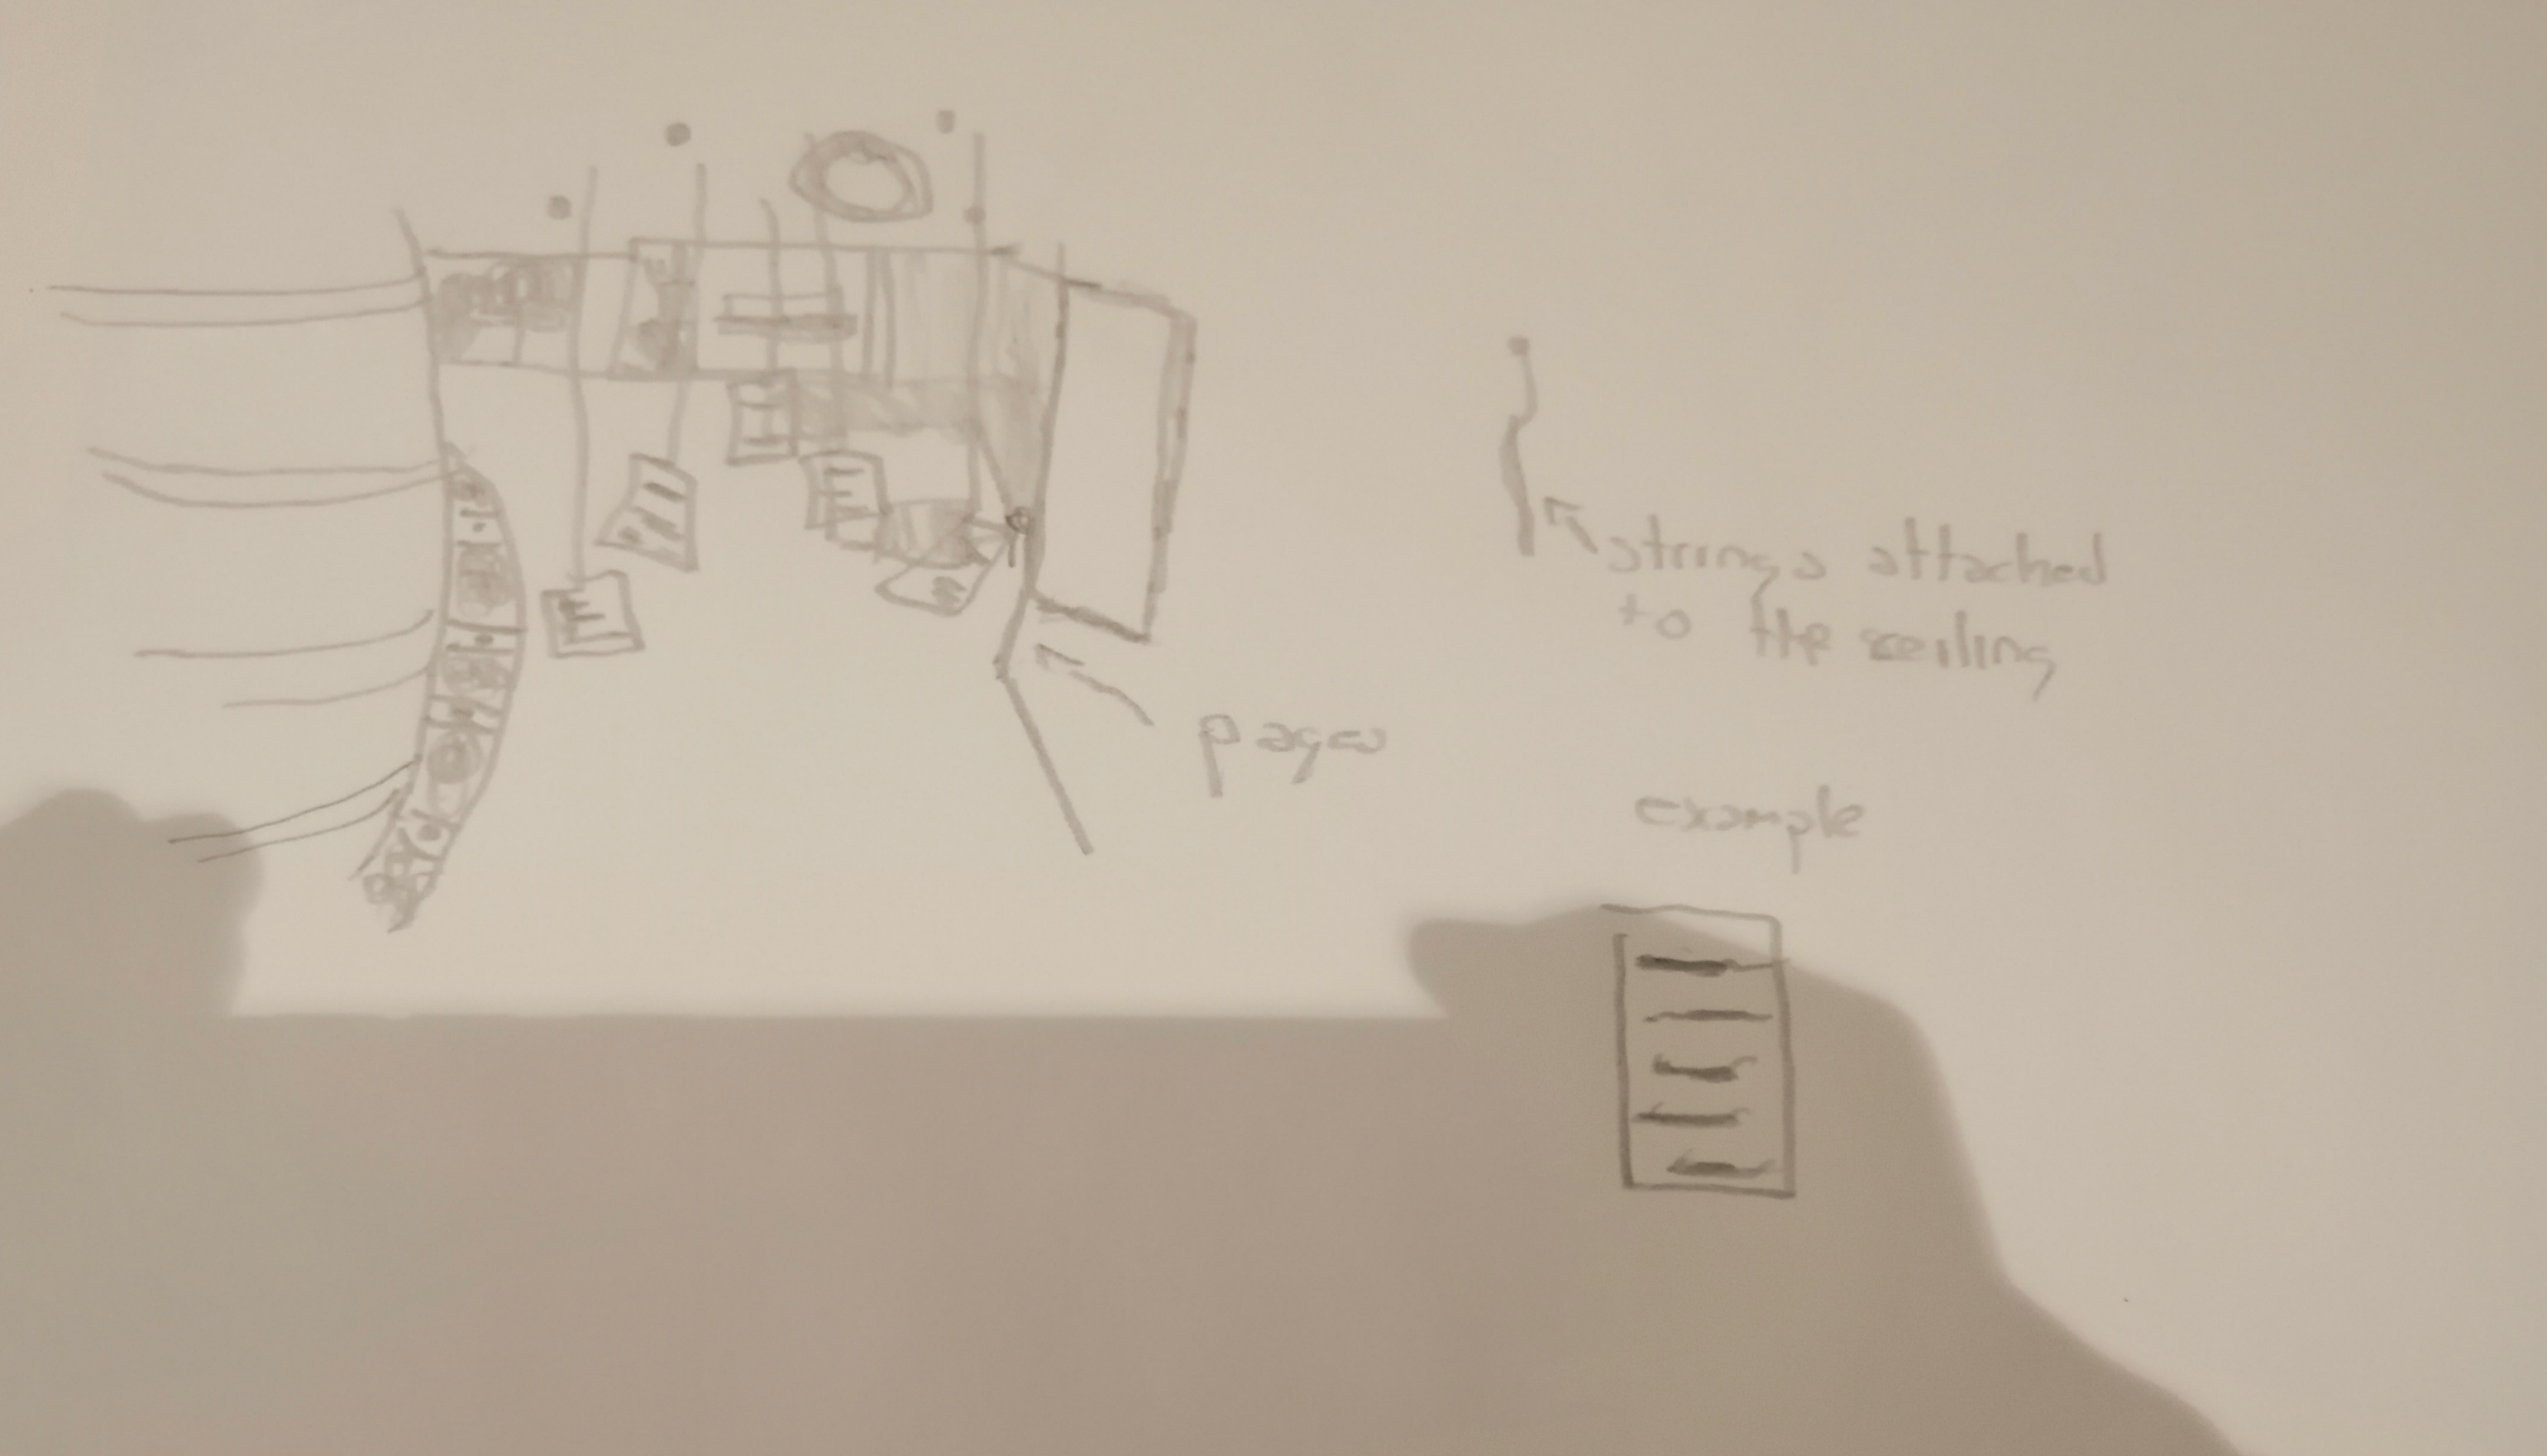 strings attached
to the ceiling
pages
example